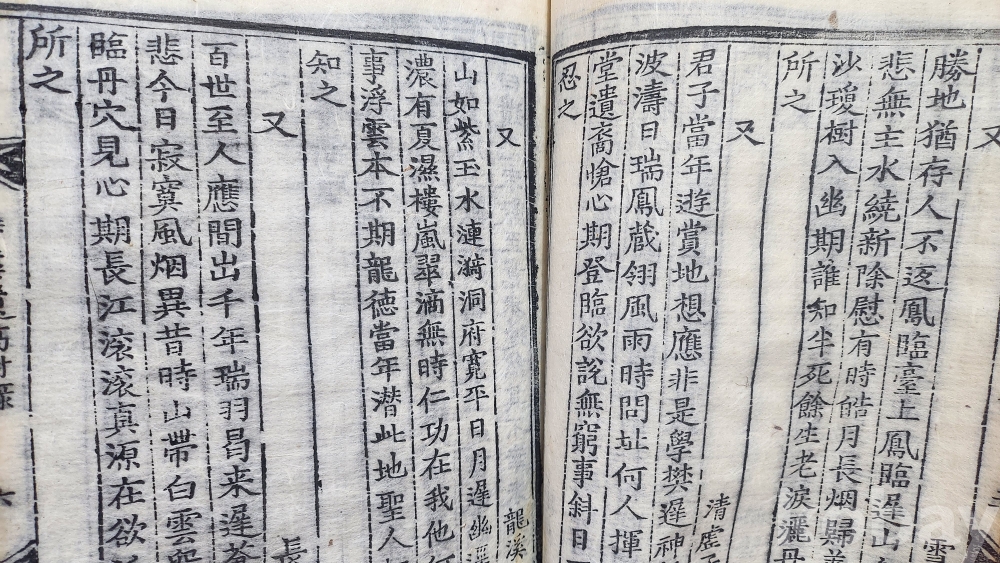 又
雪
勝地猶存人不返鳳臨臺上鳳臨遲山
悲無主水繞新除慰有時皓月長烟歸
沙瓊樹入幽期誰知半死餘生老淚灑丹
所之
又
清虛
君子當年遊賞地想應非是學樊遲神
波濤日瑞鳳戲翎風雨時問址何人揮
堂遺裔愴心期登臨欲說無窮事斜日
忍之
又
龍溪
山如紫玉水漣漪洞府寬平日月遲幽
濃有夏濕樓嵐翠滴無時仁功在我他
事浮雲本不期龍德當年潛此地聖人
知之
又
長
百世至人應間出千年瑞羽曷来遲
悲今日寂寞風烟異昔時山帶白雲
臨丹穴見心期長江滾滾真源在欲
所之
六